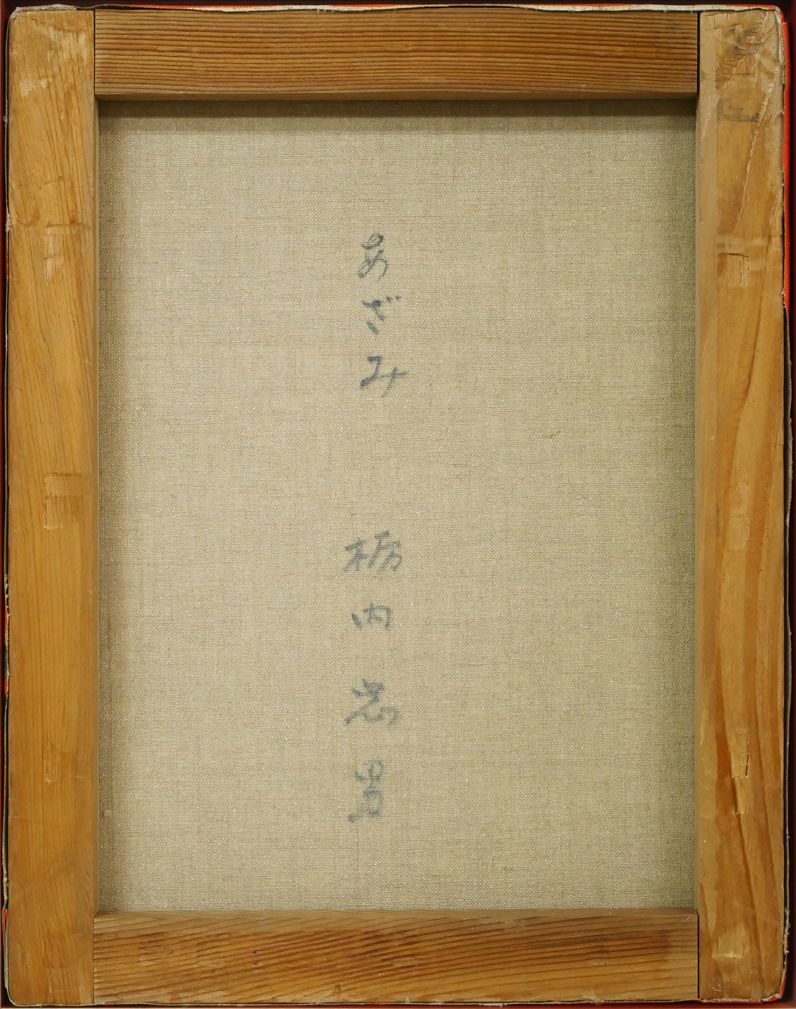 あざみ 栃内忠男